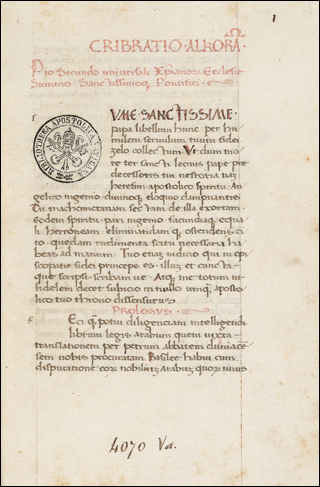 1
CRIBRATIO · ALKORĀ ·
Pio Secundo universali Xp̄ianoꝝ Ecclesie
Summo Sanctissimoq̨ Pontifici
BIBLIOTHECA APOSTOLICA VATICANA
VME · SANCTISSIME ·
papa libellum hunc per hu
milem servulum tuum fidei
zelo collectum. Ut dum mo
re ter sancti leonis pape pre
decessoris tui nestorianā
heresim apostolico spiritu. An
gelico ingenio divinoq̨ eloquio dampnantis
Tu machometanam sectam de illa exortam.
Eodem spiritu. pari ingenio facundiaq̨ equa
li. Erroneam eliminandam q̨ ostendens ci
to. quedam rudimenta scitu necessaria ha
beas ad manum. Tuo etenim iudicio qui in epi
scopatu fidei princeps es. illius et cuncta
que scripsi scribam ve. Atq̨ inc totum ut
fidelem decet subicio in nullo umq̨ aposto
lico tuo throno dissensurus
PROLOGUS ·
Eci q̨ potui diligenciam intelligendi
librum legis arabum quem iuxta
translationem per petrum abbatem cluniacē
sem nobis procuratam Basilee habui cum
disputatione eoꝝ nobiliū arabum quoꝝ unus
4070 Va.